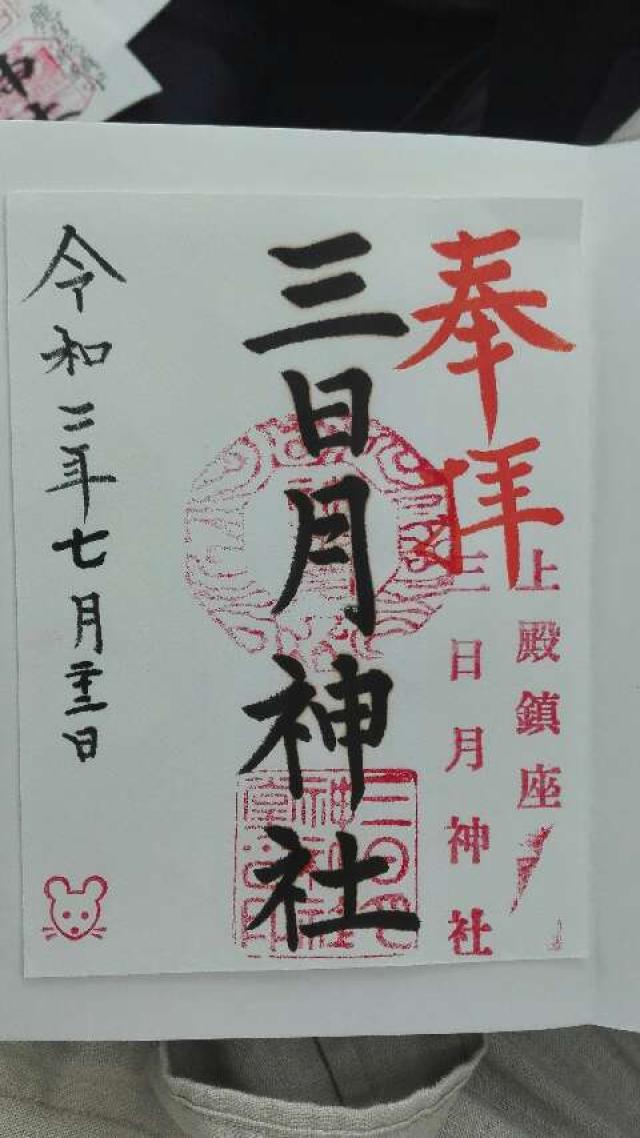 奉拝
上殿鎮座
三日月神社
三日月神社
令和二年七月二十三日